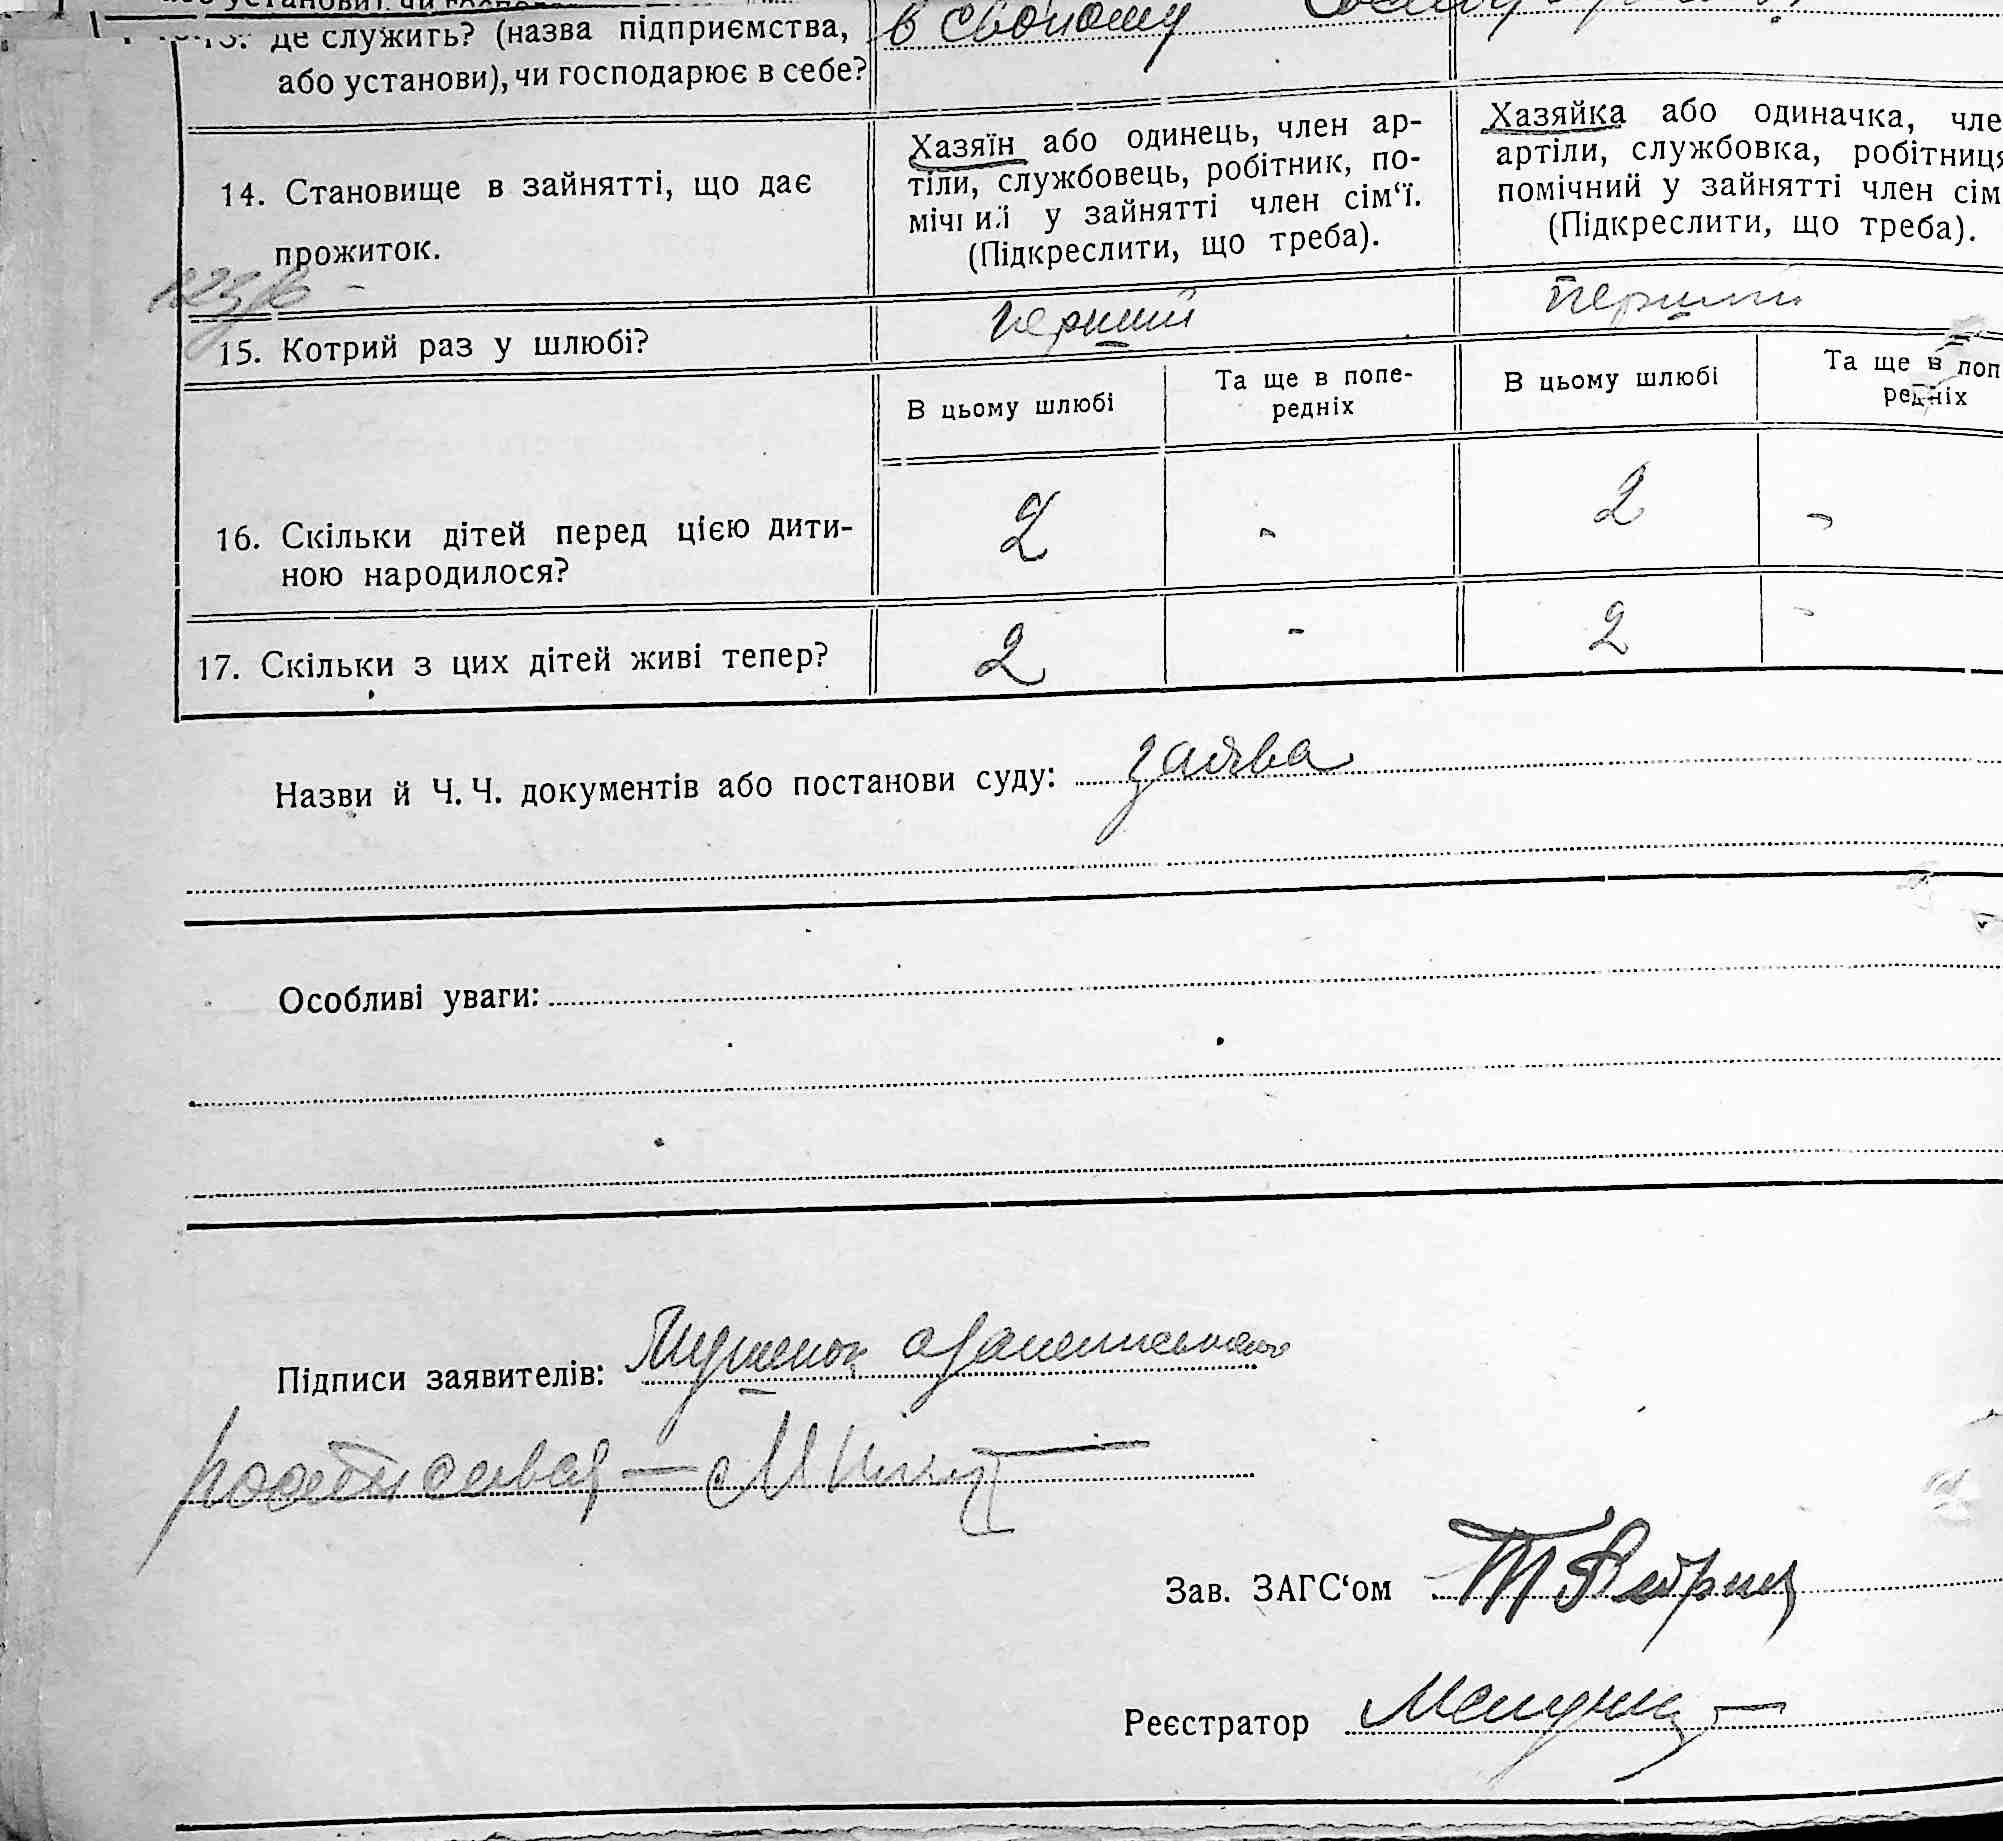 де служить? (назва підприємства, в своному
або установи), чи господарює в себе?
14. Становище в зайнятті, що дає
прожиток.
Хазяїн або одинець, член ар-
тіли, службовець, робітник, по-
мічний у зайнятті член сім‘ї.
(Підкреслити, що треба).
Хазяйка або одиначка, чле
артіли, службовка, робітниця
помічний у зайнятті член сім
(Підкреслити, що треба).
15. Котрий раз у шлюбі? перший перший
В цьому шлюбі
Та ще в попе-
редніх
В цьому шлюбі
Та ще в поп
редніх
16. Скільки дітей перед цією дити-
ною народилося?
2 - 2 -
17. Скільки з цих дітей живі тепер? 2 - 2 -
Назви й Ч. Ч. документів або постанови суду: заява
Особливі уваги:
Підписи заявителів:
Зав. ЗАГС‘ом
Реєстратор